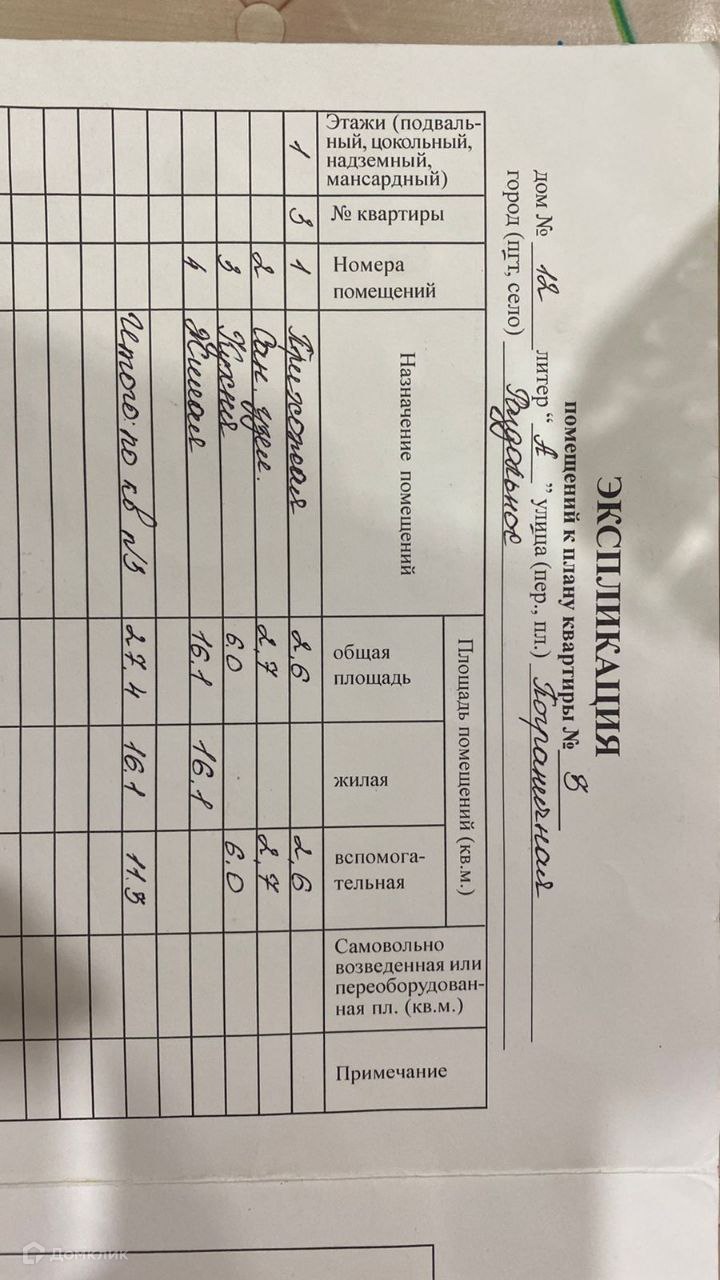 ЭКСПЛИКАЦИЯ
помещений к плану квартиры № 3
дом № 12 литер “ А ” улица (пер., пл.) Пограничная
город (пгт, село) Раздольное
Этажи (подваль-
ный, цокольный,
надземный,
мансардный)
№ квартиры
Номера
помещений
Назначение помещений
Площадь помещений (кв.м.)
общая
площадь
жилая
вспомога-
тельная
Самовольно
возведенная или
переоборудован-
ная пл. (кв.м.)
Примечание
1 3 1 Прихожая 2,6 2,6
2 Сан. узел. 2,7 2,7
3 Кухня 6.0 6.0
4 Жилая 16.1 16.1
Итого: по кв n/3 27.4 16.1 11.3
Домклик